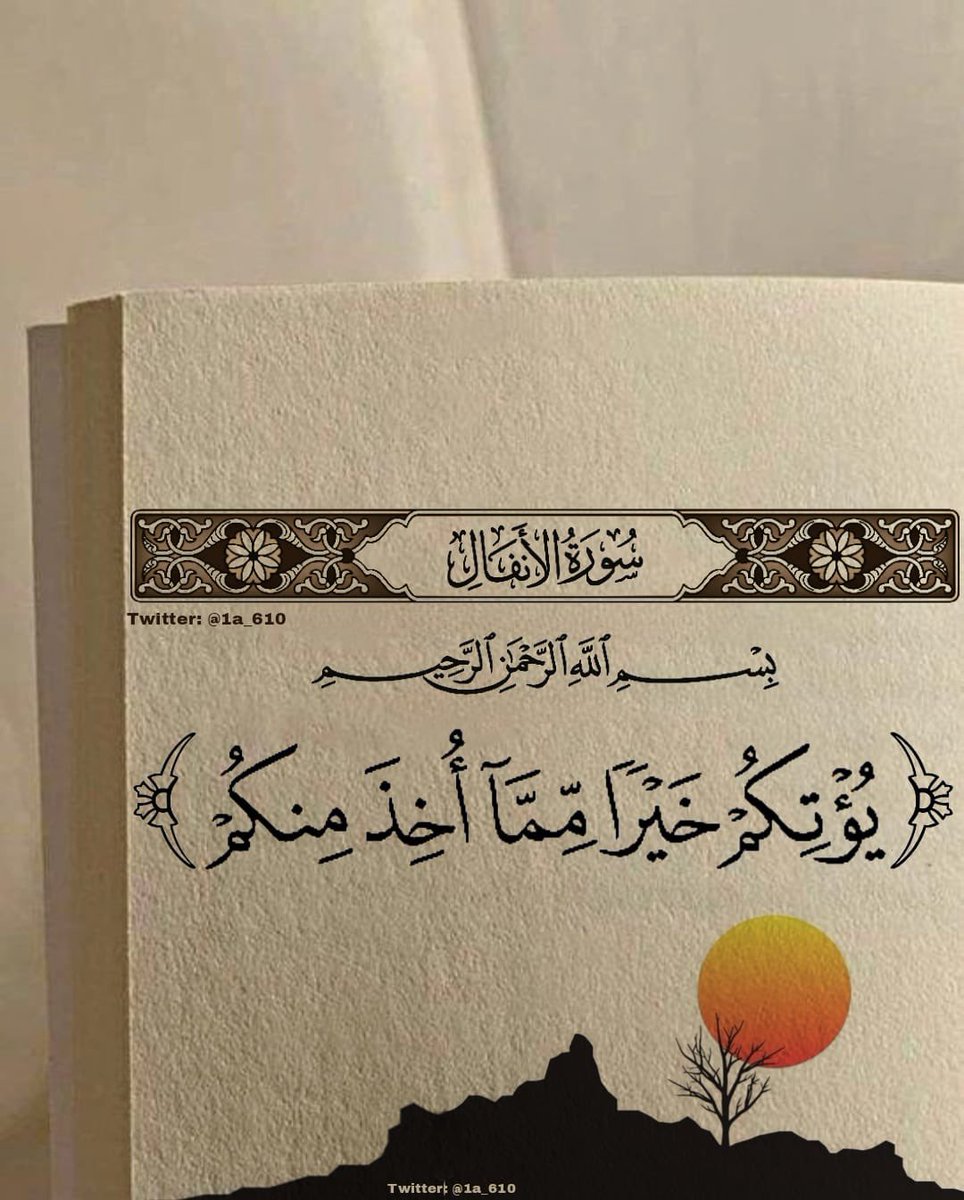 سُورَةُ الأَنفَالِ
Twitter: @1a_610
بِسْمِ ٱللَّهِ ٱلرَّحْمَٰنِ ٱلرَّحِيمِ
﴿يُؤْتِكُمْ خَيْرًا مِّمَّآ أُخِذَ مِنكُمْ﴾
Twitter: @1a_610